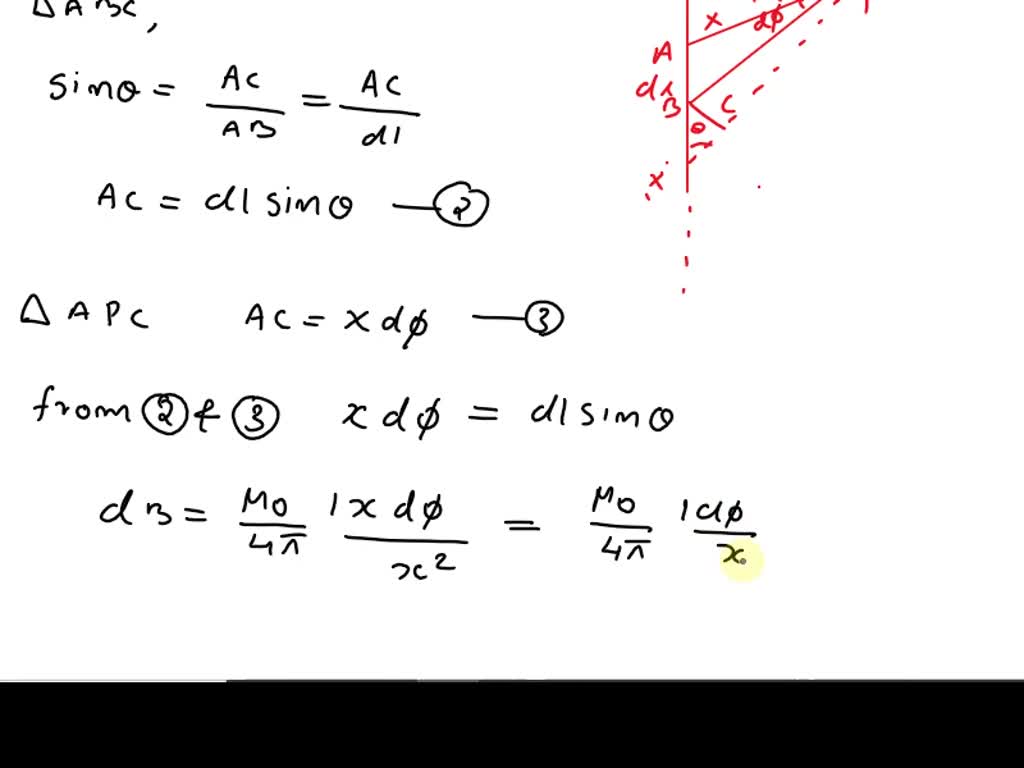 Δ ABC,
sinθ = AC/AB = AC/dl
AC = dl sinθ — ②
Δ APC AC = x dφ — ③
from ② & ③ x dφ = dl sinθ
dB = μ0/4π I x dφ/x² = μ0/4π I dφ/x
x dφ
A
dl
B C
θ
x'